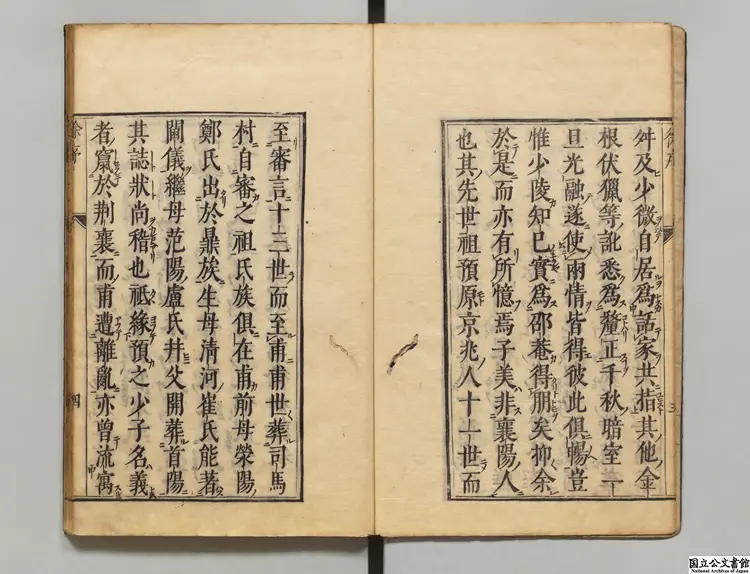 舛及少微自居為詬家共指其他金
根伏獵等訛悉為釐正千秋暗室一
旦光融遂使兩情皆得彼此俱暢豈
惟少陵知已實為邵菴得朋矣抑余
於是而亦有所憶焉子美非襄陽人
也其先世祖預原京兆人十一世而
三
至審言十三世而至甫甫世葬司馬
村自審之祖氏族俱在甫前母滎陽
鄭氏出於暴族生母清河崔氏能著
閫儀繼母范陽盧氏幷父開葬首陽
其誌狀尚稽也祇緣預之少子名義
者寔於荆襄而甫遭離亂亦曾流寓
四
国立公文書館
National Archives of Japan